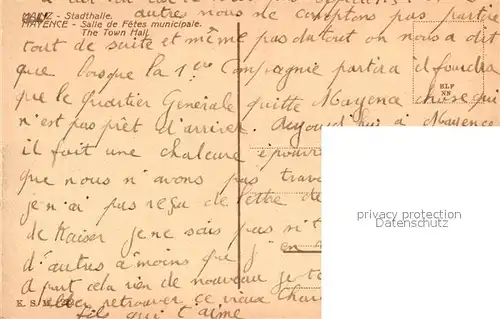 MAINZ - Stadthalle.
MAYENCE - Salle de Fêtes municipale.
The Town Hall.
autre nous ne comptons pas partir
tout de suite et même pas du tout on nous a dit
que lorsque la 1ere Compagnie partira il foudra
que le Quartier Générale quitte Mayence chose qui
n'est pas prêt d'arriver. Aujourd'hui à Mayence
il fait une chaleure épouv
que nous n'avons pas trava
je n'ai pas reçu de lettre de
de Kaiser je ne sais pas si t
d'autres à moins que j' en
a part cela rien de nouveau je t
retrouver ce vieux
fils qui t'aime
BLF
NN
K. S. M.
privacy protection
Datenschutz